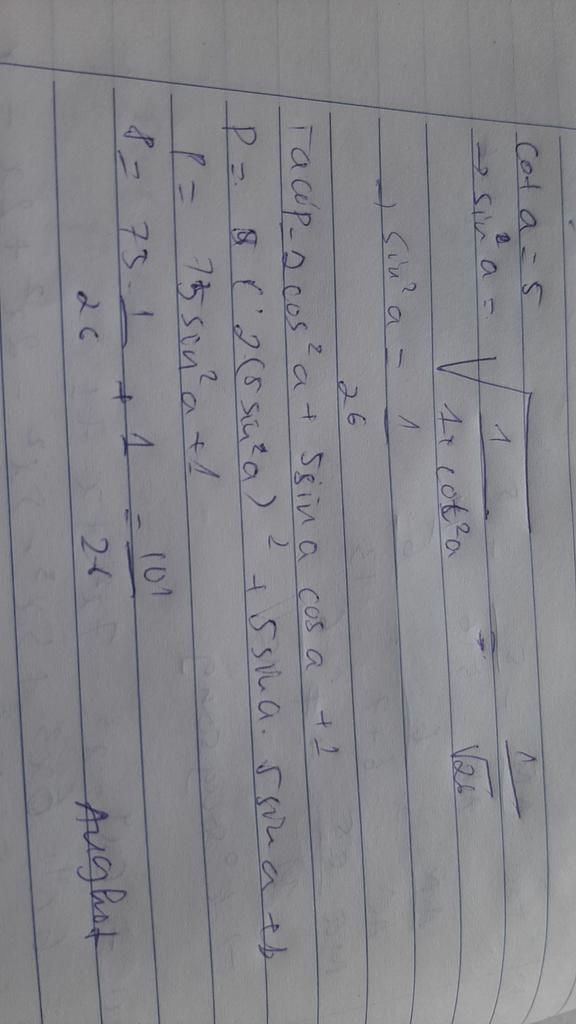 cot a = 5
→ sin² a = √ 1 / 1 + cot² a = 1 / √26
→ sin² a = 1 / 26
Ta có P = 2 cos² a + 5 sin a cos a + 1
P = 2 (5 sin² a)² + 5 sin a . 5 sin a + 1
P = 75 sin² a + 1
P = 75 . 1 / 26 + 1 = 101 / 26